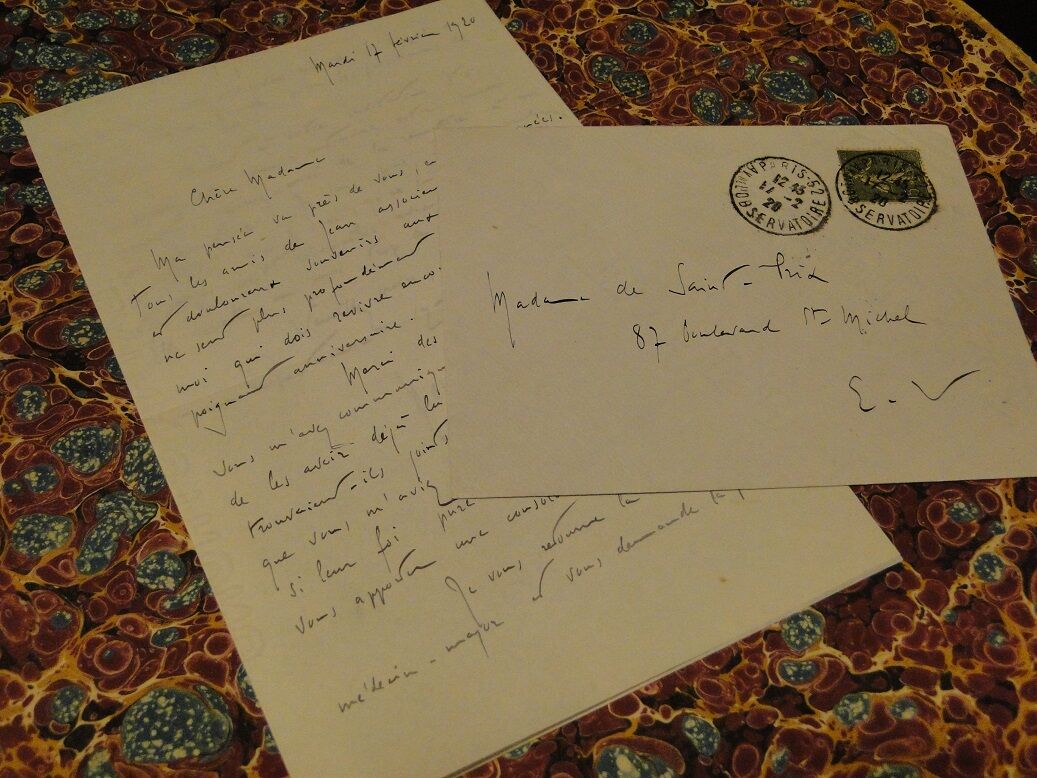 Mardi 17 février 1920
Chère Madame
Ma pensée va près de vous, ce
Tous les amis de Jean associent
et douloureux souvenirs aux
ne sent plus profondément
moi qui dois revivre enco
poignant anniversaire.
Merci des
vous m'avez communiqu
de les avoir déjà lu
trouvaient-ils joints
que vous m'aviez
si leur foi pure
vous apporter une consol
Je vous retourne la
médecin-major et vous demande la p
PARIS-52
12 45
17-2
20
OBSERVATOIRE
PARIS
20
OBSERVATOIRE
Madame de Saint-Prix
87 Boulevard St-Michel
E. V